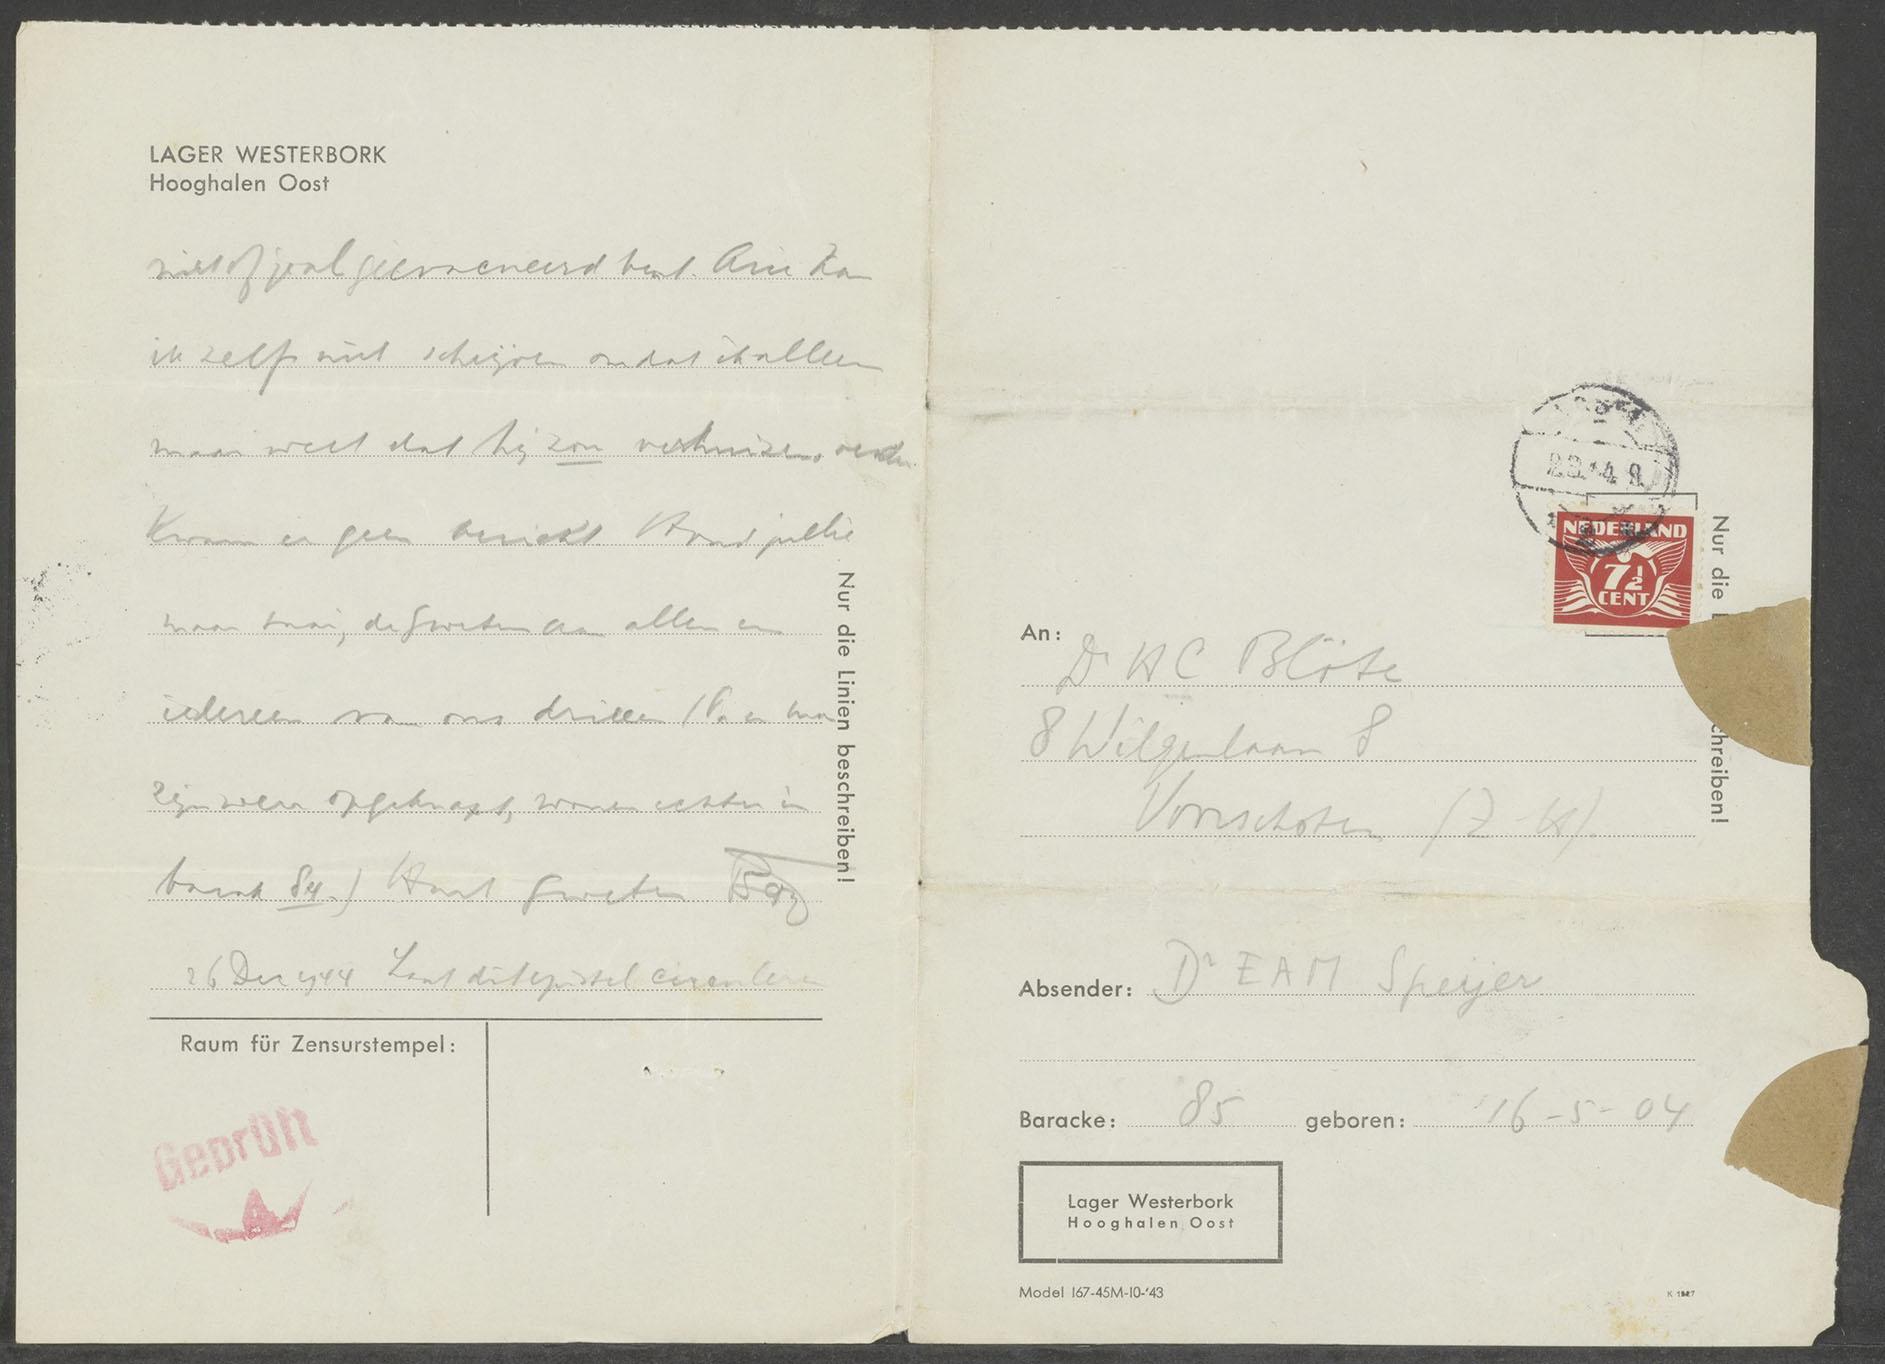 LAGER WESTERBORK
Hooghalen Oost
niet of geevacueerd bent.
ik zelf niet schrijven omdat ik alleen
maar weet dat hij zou verhuizen, verder
Kwam er geen bericht. Houd jullie
maar taai, de groeten aan allen en
iedereen van ons drieën
zijn weer opgeknapt, wonen echter in
barak 84.) Hart groeten
26 Dec 1944 Laat dit epistel circuleren
Nur die Linien beschreiben!
Raum für Zensurstempel:
Geprüft
A
NEDERLAND
7½
CENT
Nur die
chreiben!
An:
Dr H C Blöte
8 Wilgenlaan 8
Voorschoten (Z-H).
Absender: Dr E A M Speijer
Baracke: 85 geboren: 16-5-04
Lager Westerbork
Hooghalen Oost
Model 167-45M-10-'43